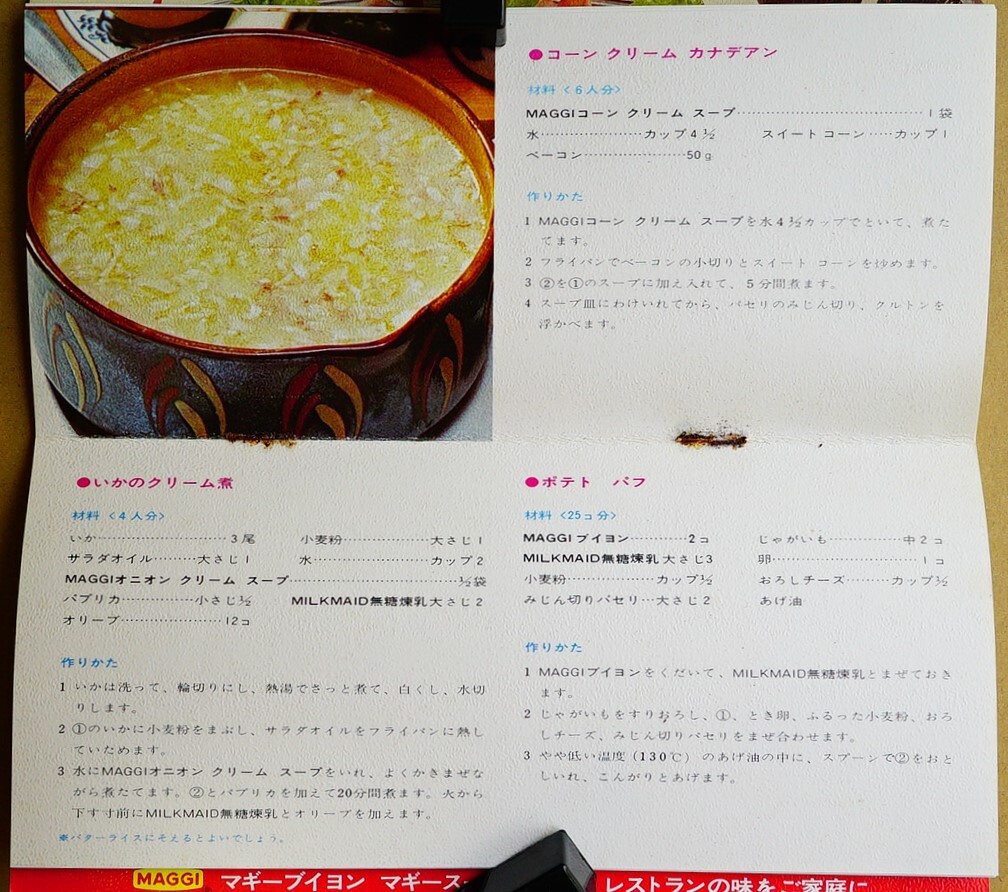 ●コーン クリーム カナデアン
材料〈6人分〉
MAGGIコーン クリーム スープ……………………………1袋
水……………カップ4½ スイートコーン……カップ1
ベーコン………………50g
作りかた
1 MAGGIコーン クリーム スープを水4½カップでといて、煮た
てます。
2 フライパンでベーコンの小切りとスイート コーンを炒めます。
3 ②を①のスープに加え入れて、5分間煮ます。
4 スープ皿にわけいれてから、パセリのみじん切り、クルトンを
浮かべます。
●いかのクリーム煮
材料〈4人分〉
いか…………………3尾 小麦粉……………大さじ1
サラダオイル………大さじ1 水…………………カップ2
MAGGIオニオン クリーム スープ…………………………½袋
パプリカ…………小さじ½ MILKMAID無糖煉乳大さじ2
オリーブ…………………12コ
作りかた
1 いかは洗って、輪切りにし、熱湯でさっと煮て、白くし、水切
りします。
2 ①のいかに小麦粉をまぶし、サラダオイルをフライパンに熱し
ていためます。
3 水にMAGGIオニオン クリーム スープをいれ、よくかきまぜな
がら煮たてます。②とパプリカを加えて20分間煮ます。火から
下す寸前にMILKMAID無糖煉乳とオリーブを加えます。
※バターライスにそえるとよいでしょう。
●ポテト パフ
材料〈25コ分〉
MAGGIブイヨン…………2コ じゃがいも……………中2コ
MILKMAID無糖煉乳大さじ3 卵………………………1コ
小麦粉……………カップ½ おろしチーズ………カップ½
みじん切りパセリ…大さじ2 あげ油
作りかた
1 MAGGIブイヨンをくだいて、MILKMAID無糖煉乳とまぜておき
ます。
2 じゃがいもをすりおろし、①、とき卵、ふるった小麦粉、おろ
しチーズ、みじん切りパセリをまぜ合わせます。
3 やや低い温度(130℃)のあげ油の中に、スプーンで②をおと
しいれ、こんがりとあげます。
MAGGI マギーブイヨン マギース レストランの味をご家庭に